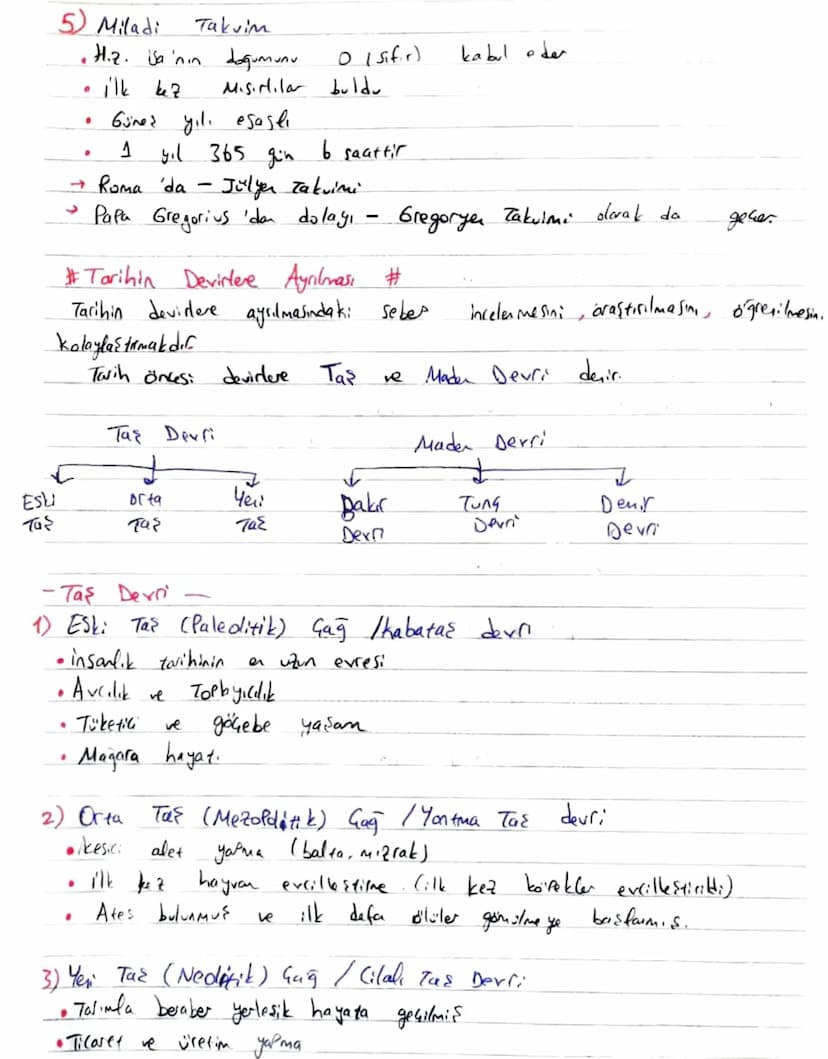 5) Miladi Takvim
• Hz. isa'nın doğumunu 0 (sıfır) kabul eder
• ilk kez Mısırlılar buldu
• Güneş yılı esaslı
• 1 yıl 365 gün 6 saattir
→ Roma'da – Jülyen Takvimi
→ Papa Gregorius'dan dolayı – Gregoryen Takvimi olarak da geçer.
# Tarihin Devirlere Ayrılması #
Tarihin devirlere ayrılmasındaki sebep incelenmesini, araştırılmasını, öğrenilmesini
kolaylaştırmakdır.
Tarih öncesi devirlere Taş ve Maden Devri denir.
Taş Devri Maden Devri
Eski Taş Orta Taş Yeni Taş Bakır Devri Tunç Devri Demir Devri
– Taş Devri –
1) Eski Taş (Paleolitik) Çağ / kabataş devri
• insanlık tarihinin en uzun evresi
• Avcılık ve Toplayıcılık
• Tüketici ve göçebe yaşam
• Mağara hayatı
2) Orta Taş (Mezolitik) Çağ / Yontma Taş devri
• kesici alet yapma (balta, mızrak)
• ilk kez hayvan evcilleştirme (ilk kez köpekler evcilleştirildi)
• Ateş bulunmuş ve ilk defa ölüler gömülmeye başlamış.
3) Yeni Taş (Neolitik) Çağ / Cilalı Taş Devri
• Tarımla beraber yerleşik hayata geçilmiş
• Ticaret ve üretim yapma